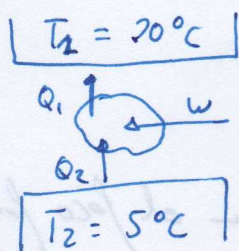 T₁ = 20°C
Q₁
W
Q₂
T₂ = 5°C